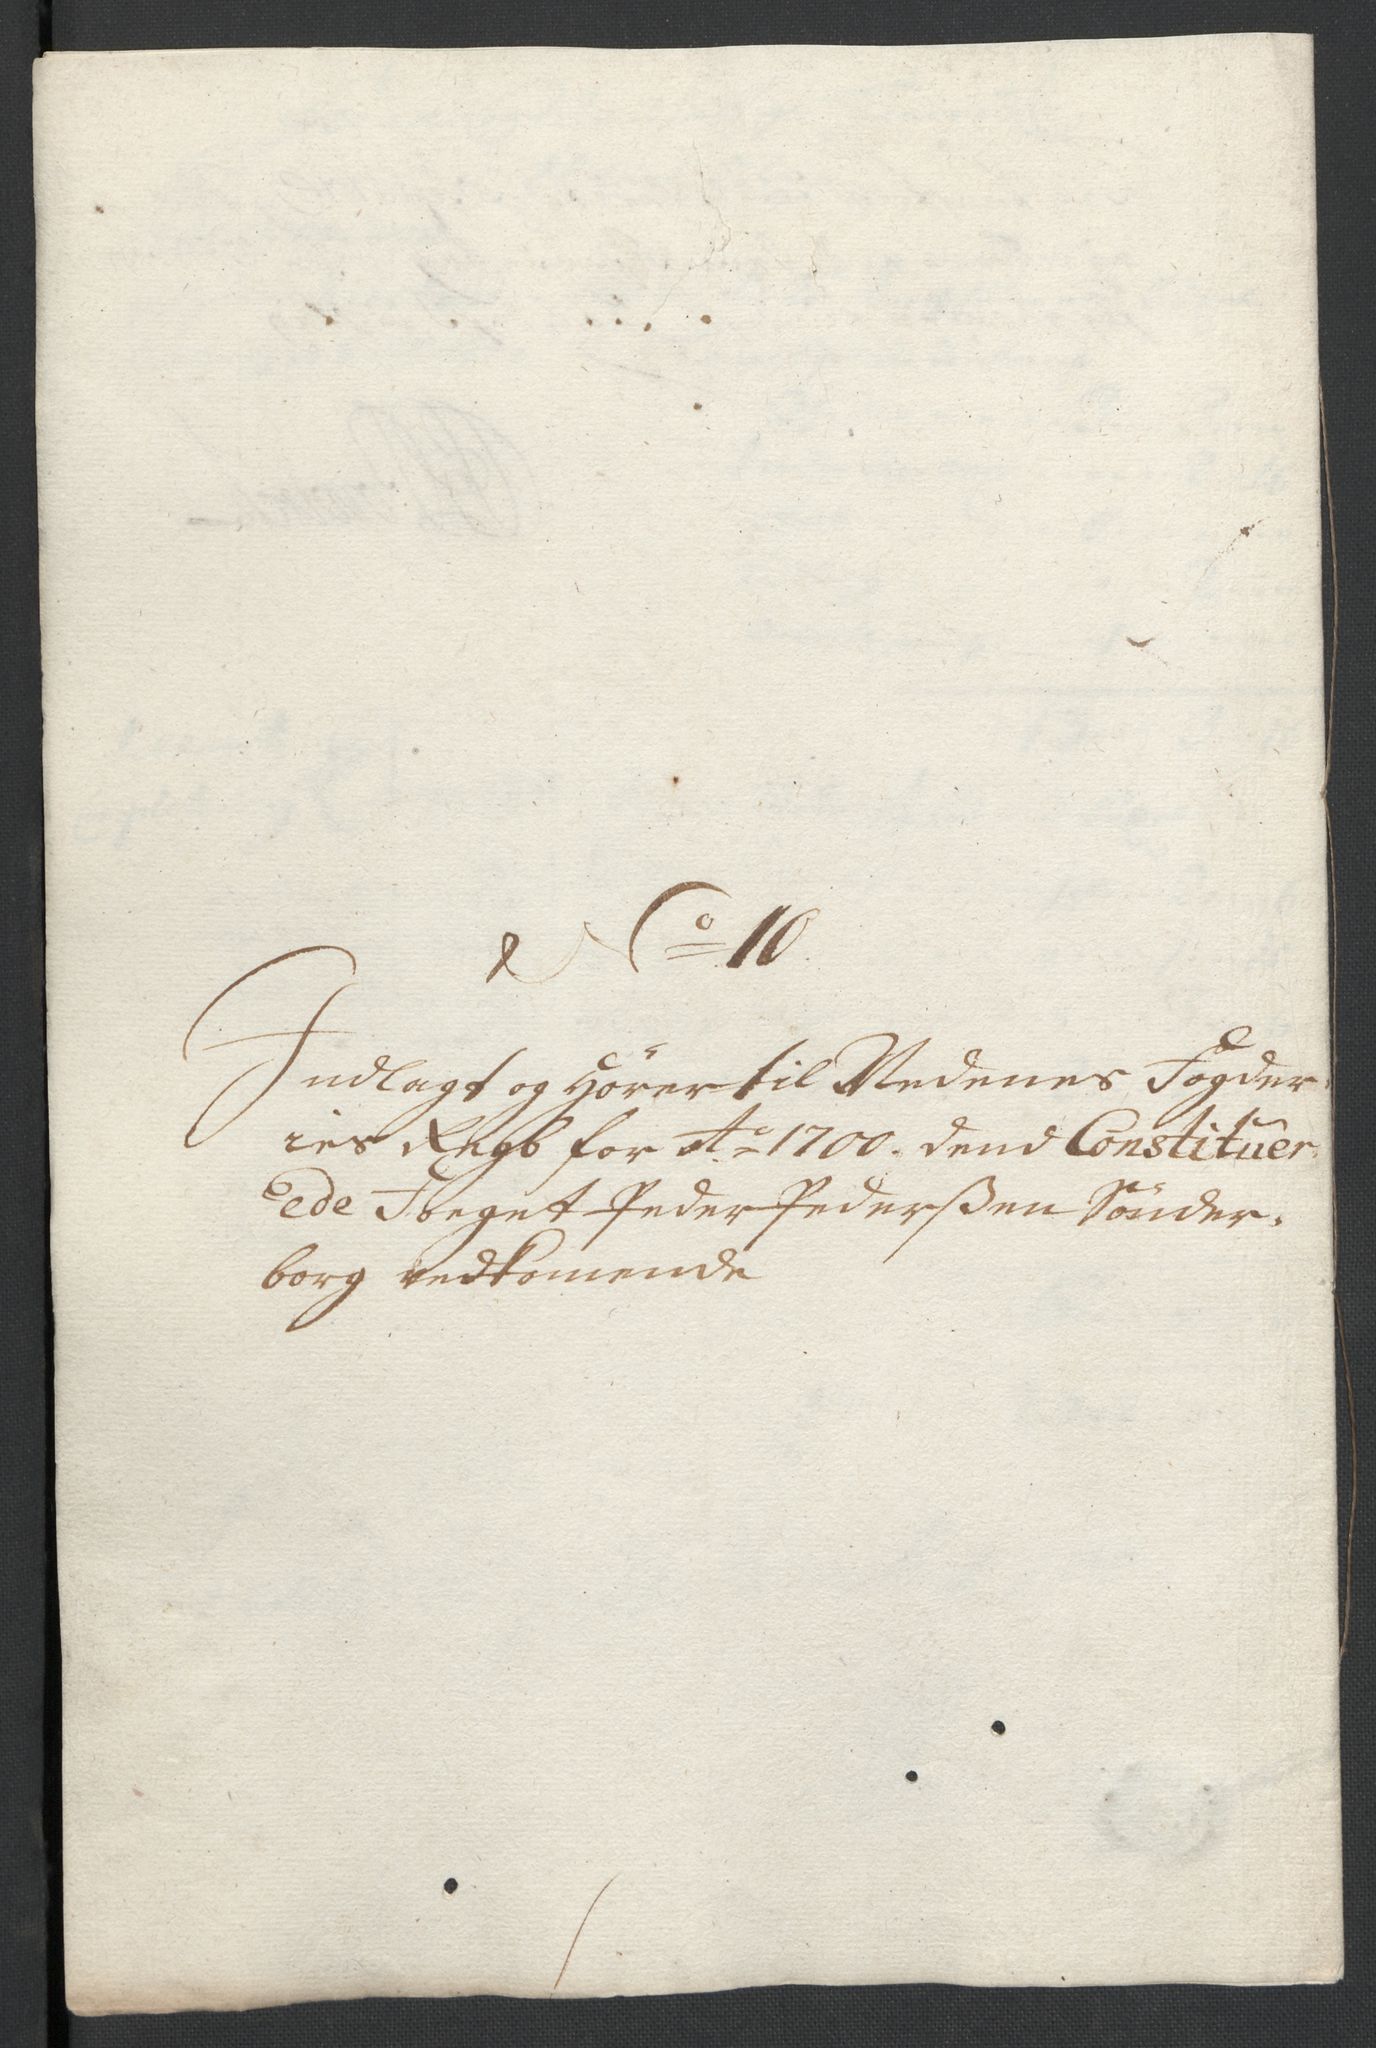 No 10
Indlagt og Hörer til Nedenes Fogder-
ies Regb for Ao 1700. dend Constituer-
ede Foeget Peder Pederßen Sönder-
borg vedkomende